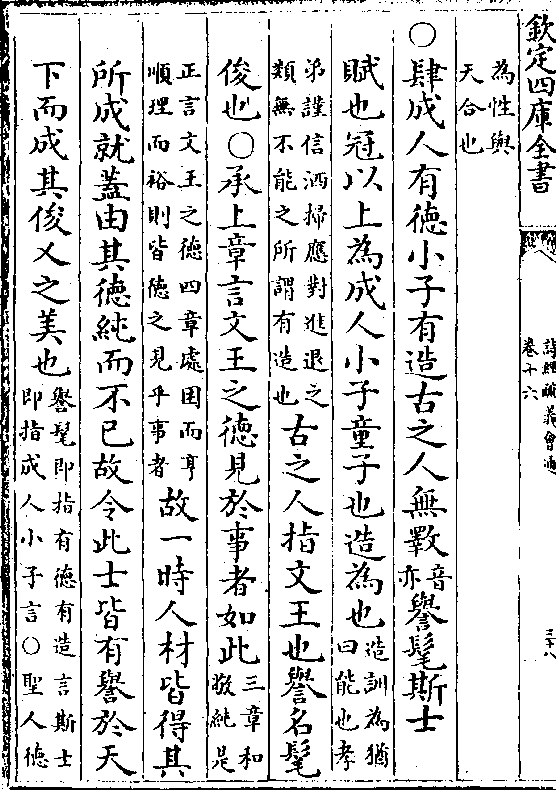 欽定四庫全書
詩經疏義會通
卷十六
三十八
為性與
天合也
○肆成人有德小子有造古之人無斁音
亦譽髦斯士
賦也冠以上為成人小子童子也造為也造訓為猶
曰能也孝
弟謹信洒掃應對進退之
類無不能之所謂有造也古之人指文王也譽名髦
俊也○承上章言文王之德見於事者如此三章和
敬純是
正言文王之德四章處困而亨
順理而裕則皆德之見乎事者故一時人材皆得其
所成就蓋由其德純而不已故令此士皆有譽於天
下而成其俊乂之美也譽髦即指有德有造言斯士
即指成人小子言○聖人德